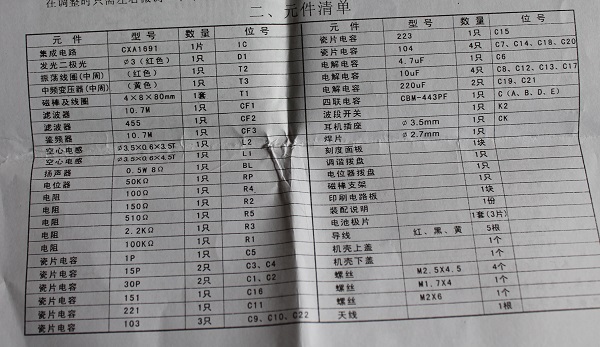 在调整时只需左右微调
二、元件清单
元件 型号 数量 位号
集成电路 CXA1691 1片 IC
发光二极光 Φ3(红色) 1只 D1
振荡线圈(中周) (红色) 1只 T2
中频变压器(中周) (黄色) 1只 T3
磁棒及线圈 4×8×80mm 1套 T1
滤波器 10.7M 1只 CF1
滤波器 455 1只 CF2
鉴频器 10.7M 1只 CF3
空心电感 Φ3.5×0.6×3.5T 1只 L2
空心电感 Φ3.5×0.6×4.5T 1只 L1
扬声器 0.5W 8Ω 1只 BL
电位器 50KΩ 1只 RP
电阻 100Ω 1只 R4
电阻 150Ω 1只 R2
电阻 510Ω 1只 R5
电阻 2.2KΩ 1只 R3
电阻 100KΩ 1只 R1
瓷片电容 1P 1只 C5
瓷片电容 15P 2只 C3、C4
瓷片电容 30P 2只 C1、C2
瓷片电容 151 1只 C16
瓷片电容 221 1只 C11
瓷片电容 103 3只 C9、C10、C22
元件 型号 数量 位号
瓷片电容 223 1只 C15
瓷片电容 104 4只 C7、C14、C18、C20
电解电容 4.7uF 1只 C6
电解电容 10uF 4只 C8、C12、C13、C17
电解电容 220uF 2只 C19、C21
四联电容 CBM-443PF 1只 C(A、B、D、E)
波段开关 1只 K2
耳机插座 Φ3.5mm 1只 CK
焊片 Φ2.7mm 1只
刻度面板 1块
调谐拨盘 1只
电位器拨盘 1只
磁棒支架 1只
印刷电路板 1块
装配说明 1份
电池极片 1套(3片)
导线 红、黑、黄 5根
机壳上盖 1个
机壳下盖 1个
螺丝 M2.5X4.5 4个
螺丝 M1.7X4 1个
螺丝 M2X6 1个
天线 1根